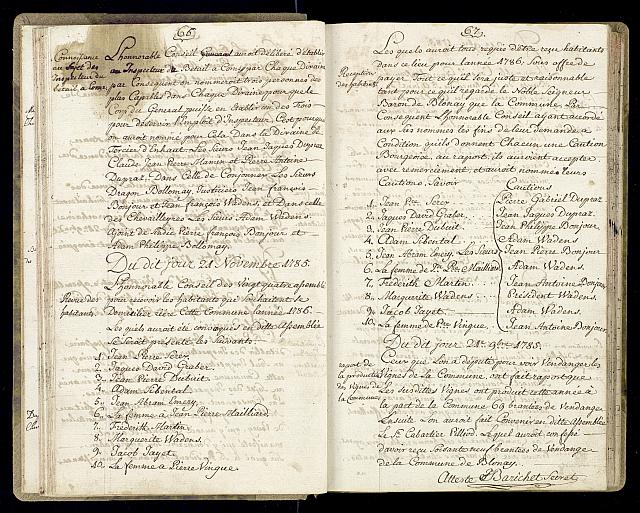 66.
Connoissance
au Sujet des
Inspecteur du
betail a Corne.
L'honnorable Conseil auroit délibéré d'établir
un Inspecteur de Bétail a Corne par Chaque Dixaine
par Consequent on nommeroit trois personnes des
plus Capables dans Chaque Dixaine pour que le
Conseil General puisse en établir un des Trois
pour desservir l'Employ d'Inspecteur. C'est pourquoy
on auroit nommé pour Cela Dans la Dixaine de
Tercier d'Enhaut Les Sieurs Jean Jaques Dupraz
Claude Jean Pierre Mamin et Pierre Antoine
Dupraz Dans Celle de Cojonnex Les Sieurs
Dragon Bollomay, Justicier Jean françois
Bonjour et Jean françois Wadens, et Dans celle
des Chevalleyres Les Sieurs Adam Wadens
Ajoint de Justice Pierre françois Bonjour et
Adam Philippe Bollomay.
Du dit jour 21 Novembre 1785.
Revue des
habitants.
L'honnorable Conseil des Vingt quatre assemblé
pour recevoir les habitants qui Souhaitent se
Domicilier Riere Cette Commune l'année 1786.
Les quels auroit été convoqués en ditte Assemblée
Se Seroit presenté les Suivants.
1. Jean Pierre Serex
2. Jaques David Graber.
3. Jean Pierre Dubuit
4. Adam Sibental
5. Jean Abram Emery.
6. La femme a Jean Pierre Mailliard.
7. Frederich Martin.
8. Marguerite Wadens.
9. Jacob Jayet.
10. La femme a Pierre Vingue
67.
Reception
des habitants
Les quels auroit tous requis d'être reçu habitants
dans ce lieu pour l'année 1786. Sous offre de
payer Tout ce qu'il sera juste et raisonnable
tant pour ce qu'il regarde le Noble Seigneur
Baron de Blonay que la Commune Par
Consequent L'honnorable Conseil ayant accordé
aux Sus nommés les fins de leur demande a
Condition qu'ils donnent Chacun une Caution
Bourgeoise, au raport, ils auroient accepter
avec remerciement, et auroit nommé leurs
Cautions. Savoir
Cautions
1. Jean Prre. Serex Pierre Gabriel Dupraz
2. Jaques David Graber. Jean Jaques Dupraz
3. Jean Pierre Dubuit Jean Philippe Bonjour
4. Adam Sibental Adam Wadens
5. Jean Abram Emery, Les Sieurs Jean Pierre Bonjour
6. La femme de Jn. Prre. Mailliard Adam Wadens.
7. Frederich Martin Jean Antoine Bonjour
8. Marguerite Wadens President Wadens.
9. Jacob Jayet Adam Wadens.
10. La femme de Prre. Vingue, Jean Antoine Bonjour
Du dit jour 21e. 9bre. 1785.
raport de
la produite
des Vignes de
la Commune
Ceux que L'on a député pour voir Vendanger les
Vignes de La Commune, ont fait raport que
Les susdittes Vignes ont produit cette année à
la part de le Commune 69 brantées de Vendange
Ensuite l'on auroit fait Convenir en ditte Assemblée
Le Sr. Cabartier Pilliod. Le quel auroit confessé
d'avoir reçu soixante neuf brantées de Vendange
de la Commune de Blonay.
Atteste Barichet Secret